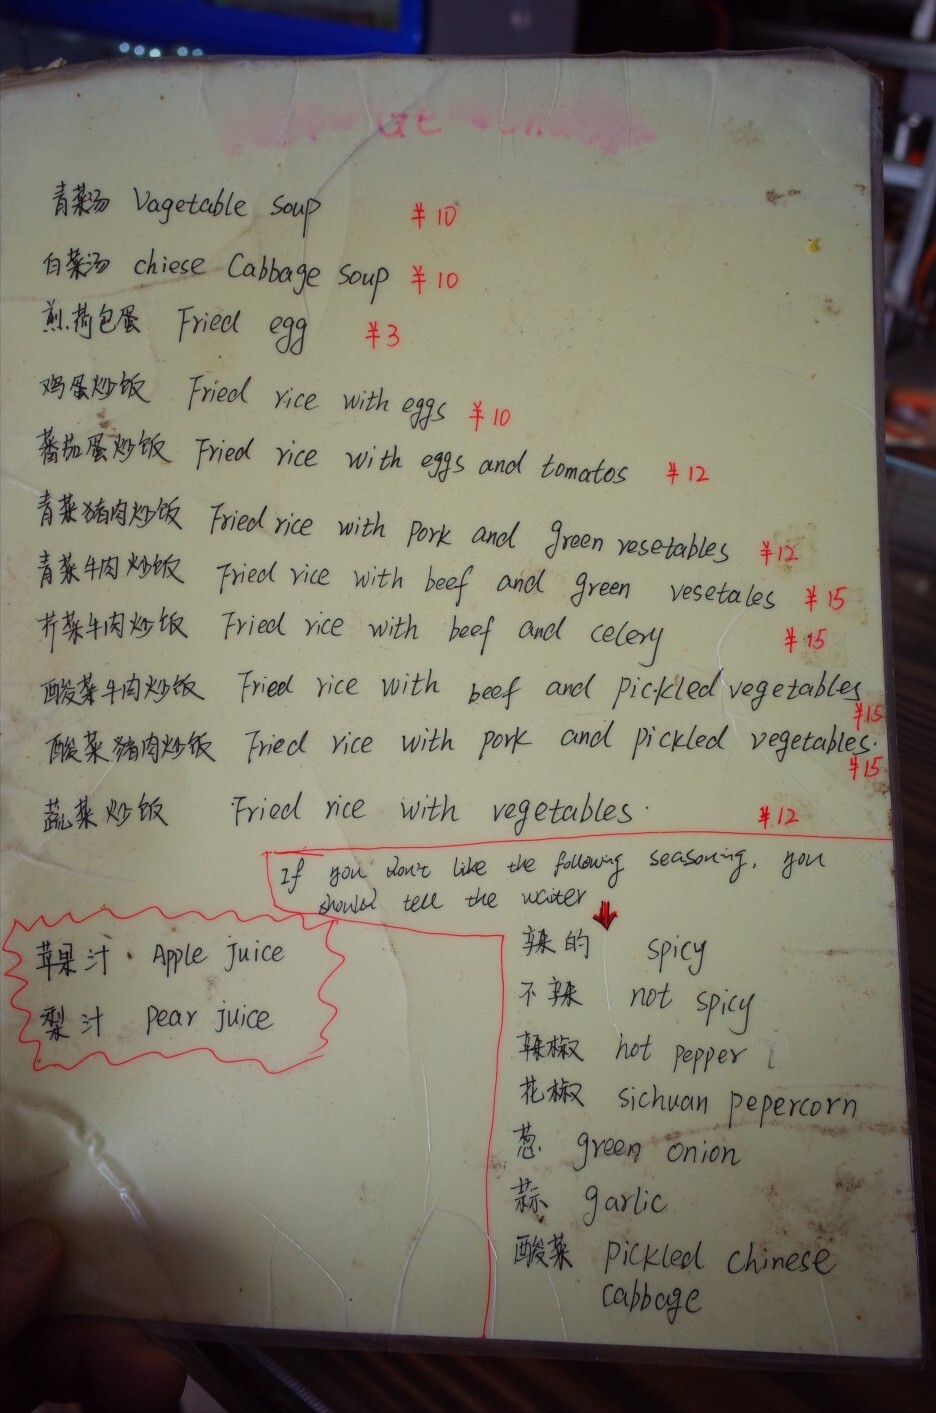 青菜汤 Vagetable soup ¥10
白菜汤 chiese Cabbage soup ¥10
煎荷包蛋 Fried egg ¥3
鸡蛋炒饭 Fried rice with eggs ¥10
蕃茄蛋炒饭 Fried rice with eggs and tomatos ¥12
青菜猪肉炒饭 Fried rice with pork and green vesetables ¥12
青菜牛肉炒饭 Fried rice with beef and green vesetales ¥15
芹菜牛肉炒饭 Fried rice with beef and celery ¥15
酸菜牛肉炒饭 Fried rice with beef and pickled vegetables ¥15
酸菜猪肉炒饭 Fried rice with pork and pickled vegetables. ¥15
蔬菜炒饭 Fried rice with vegetables. ¥12
If you don't like the following seasoning, you
should tell the waiter
苹果汁. Apple juice
梨汁 pear juice
辣的 spicy
不辣 not spicy
辣椒 hot pepper
花椒 sichuan pepercorn
葱 green onion
蒜 garlic
酸菜 pickled chinese
cabbage